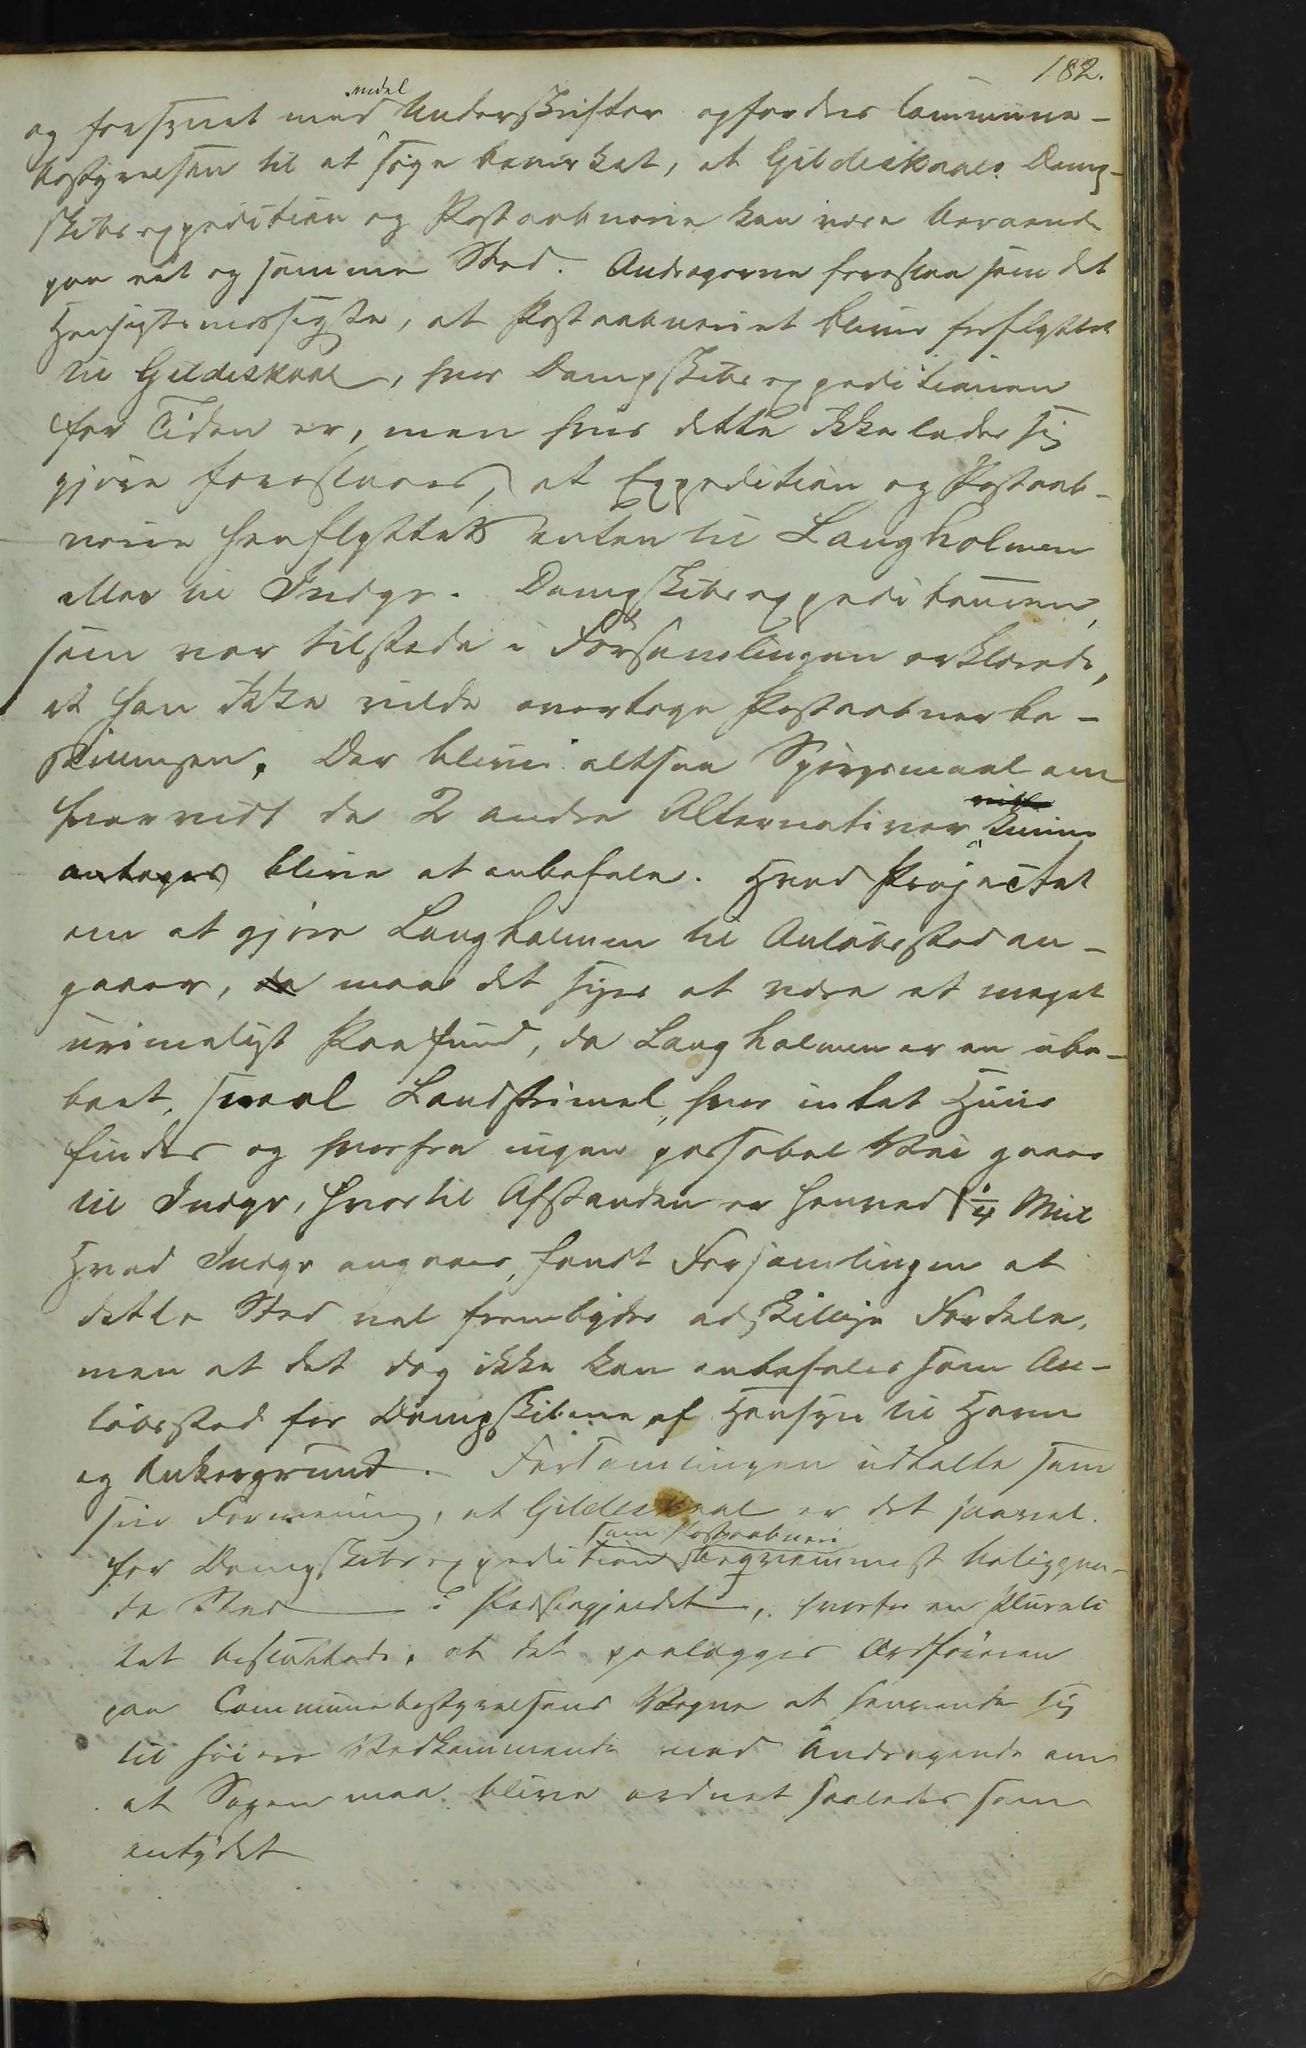 182.
og forsynet med ndel Underskrifter opfordres Commune-
bestyrelsen til at søge bevirket, at Gildeskaals Damp-
skibsexpedition og Postaabneri kan være beroende
paa eet og samme Sted. Andragerne foreslaa som det
Hensigtsmæssigste, at Postaabneriet bliver forflyttet
til Gildeskaal, hvor Dampskibsexpeditionen
for Tiden er, men hvis dette ikke lader sig
gjøre foreslaaes, at Expedition og Postaab-
neri henflyttes enten til Langholmen
eller til Indyr. Dampskibsexpeditøren,
som var tilstede i Forsamlingen erklærede,
at han ikke vilde overtage Postaabnerbe-
stillingen. Der bliver altsaa Spørgsmaal om
hvorvidt de 2 andre Alternativer kunne
antages blive at anbefale. Hvad Projectet
om at gjøre Langholmen til Anløbssted an-
gaaer, da maa det siges at være et meget
urimeligt Paafund, da Langholmen er en ube-
boet, smal Landstrimmel, hvor intet Huus
findes og hvorfra ingen passabel Vei gaaer
til Indyr, hvortil Afstanden er henved 1/4 Miil
Hvad Indyr angaaer, fandt Forsamlingen at
dette Sted vel frembyder adskillige Fordele,
men at det dog ikke kan anbefales som An-
løbssted for Dampskibene af Hensyn til Havn
og Ankergrund. Forsamlingen udtalte som
sin Formening, at Gildeskaal er det saavel
som Postaabneri
for Dampskibsexpedition beqvemmest beliggen-
de Sted i Præstegjeldet, hvorfor en Plurali
tet besluttede, at det paalægges Ordføreren
paa Communebestyrelsens Vegne at henvende sig
til høiere Vedkommende med Andragende om
at Sagen maa blive ordnet saaledes som
antydet